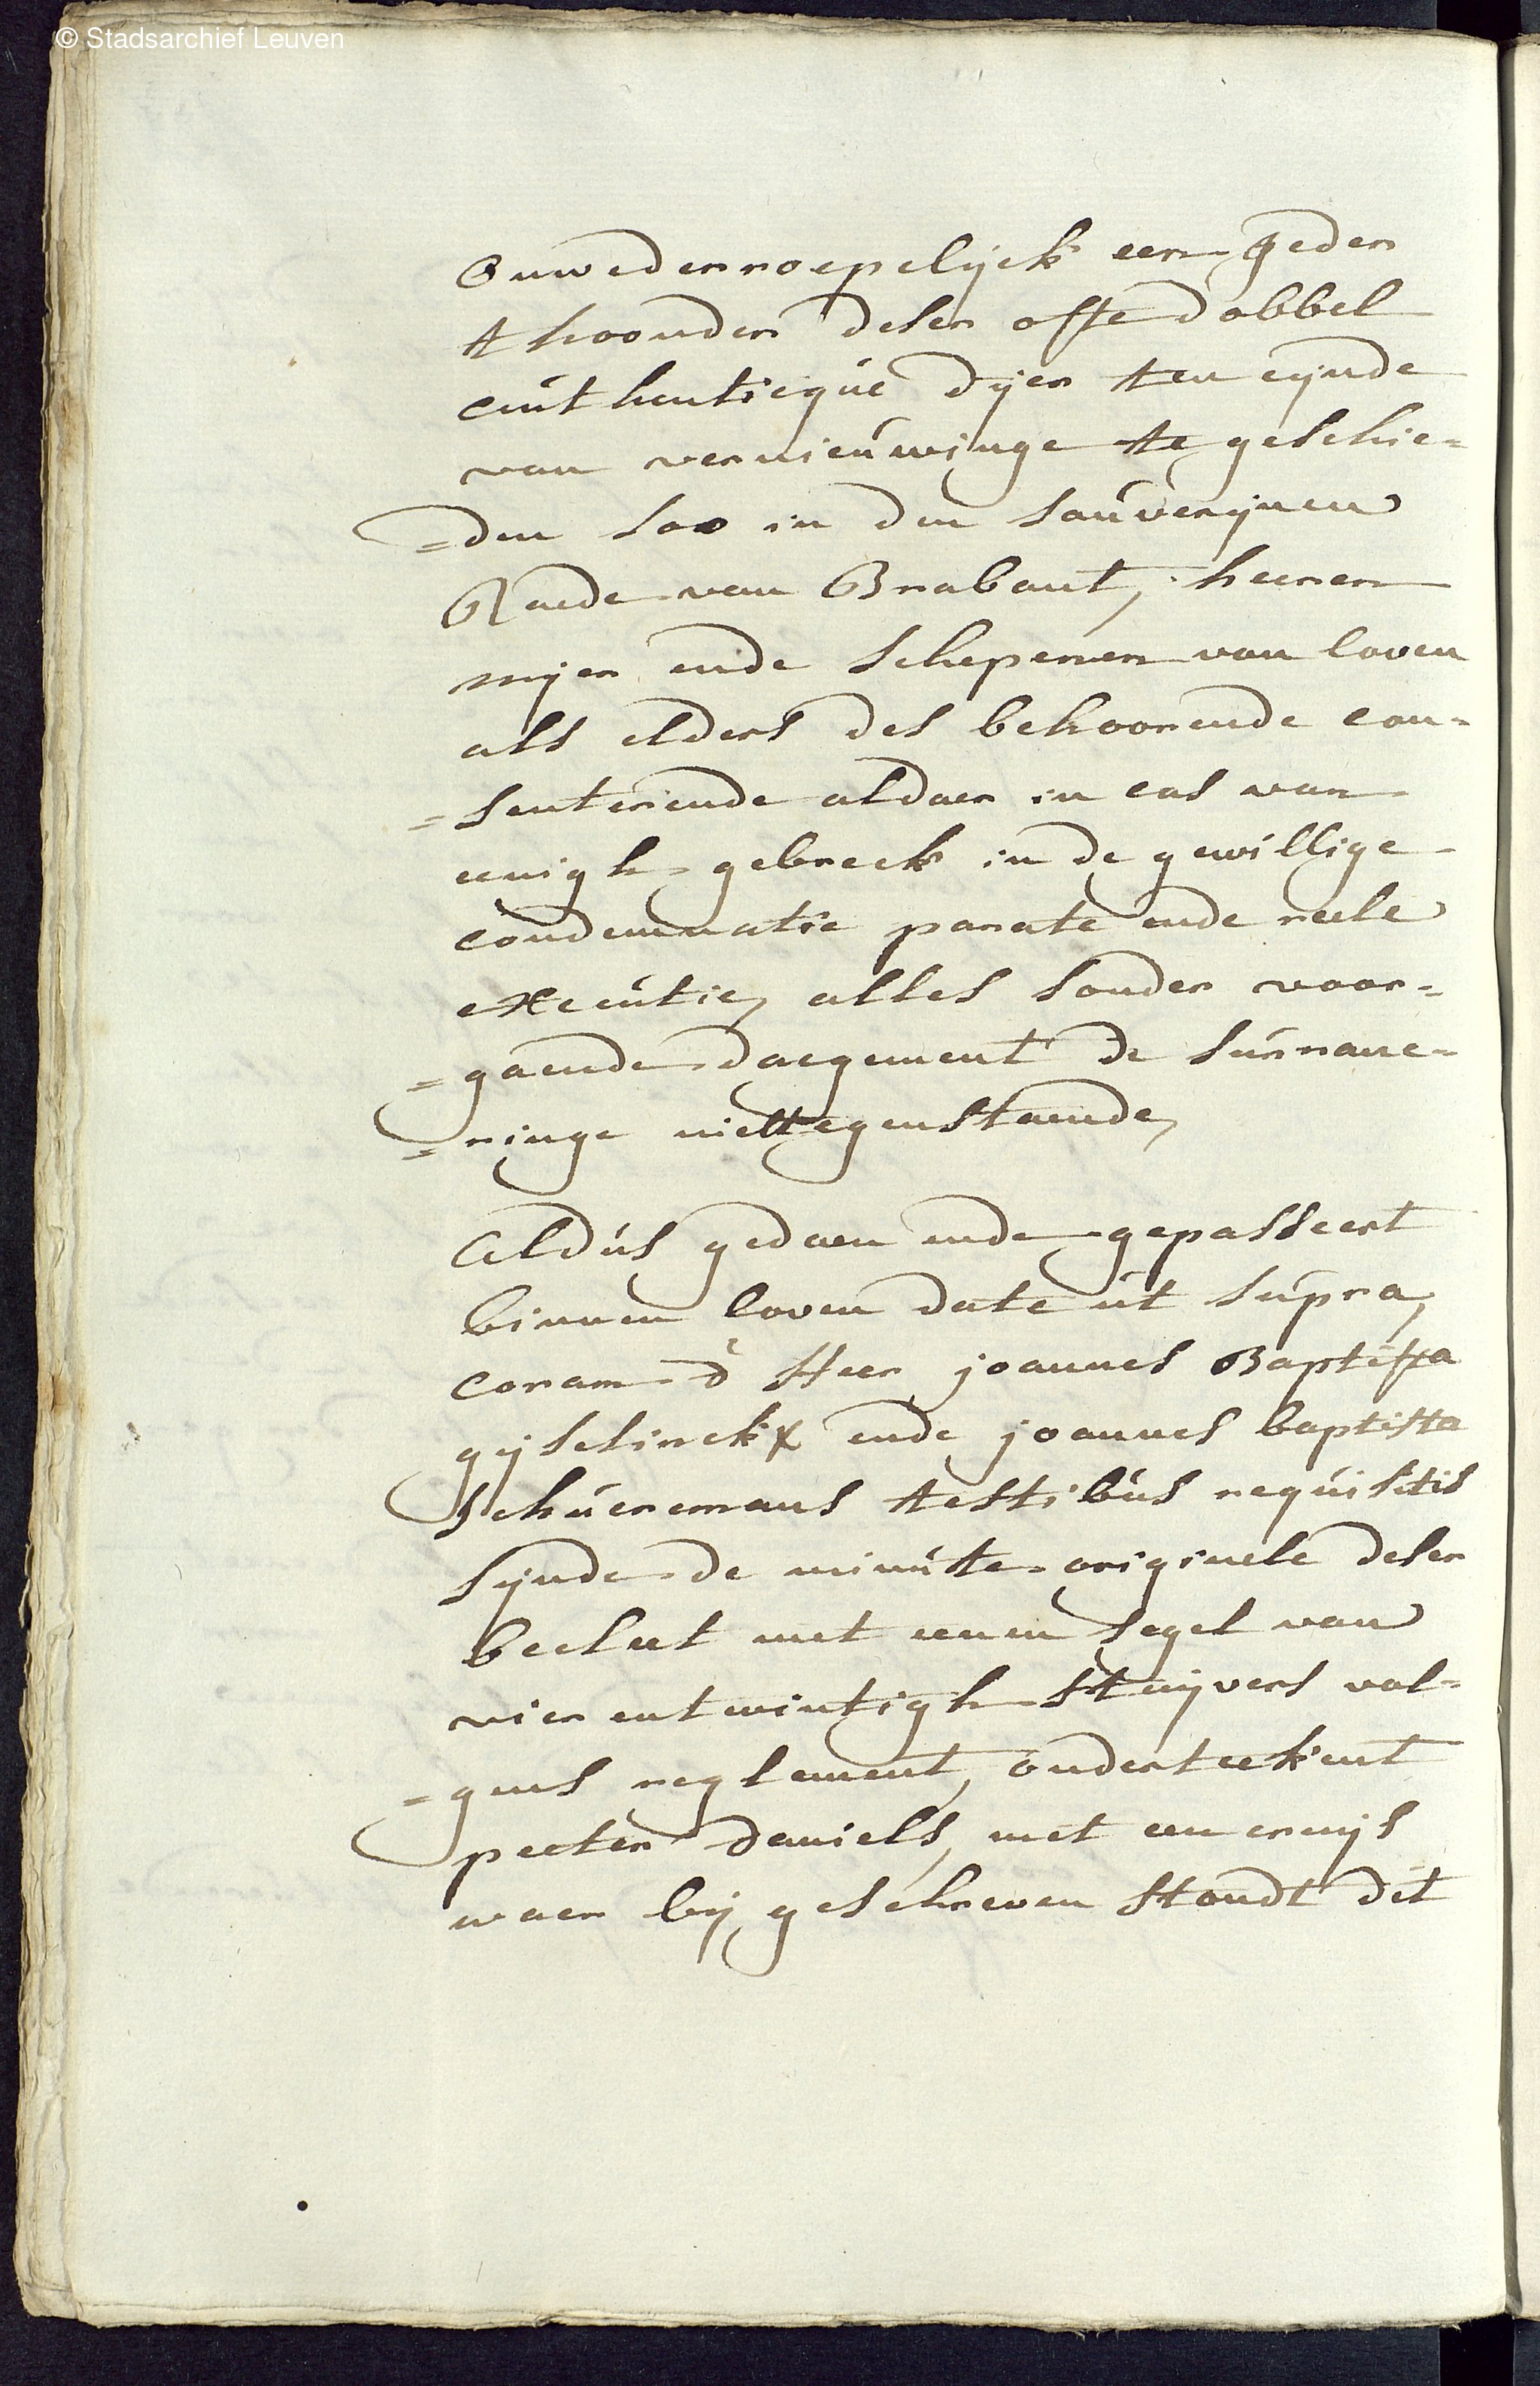 © Stadsarchief Leuven
Onwederroepelijck een jeder
thoonder deser ofte dobbel
authenticque dijer ten eijnde
van vernieuwinge te geschie=
=den soo in den sauverijnen
Raede van Brabant, heeren
mijer ende schepenen van loven
als elders des behoorende con=
=senterende aldaer in cas van
eenigh gebreck in de gewillige
condemnatie parate ende reele
executie, alles sonder voor=
=gaende daegement de surrane=
=ringe niettegenstaende,
Aldus gedaen ende gepasseert
binnen loven date ut supra,
coram d' Heer joannes Baptista
gijselinckx ende joannes baptista
schueremans testibus requisitis
sijnde de minute originele deser
becleet met eenen segel van
vierentwintigh stuijvers vol=
=gens reglement, onderteekent
peeter daniels, met een cruijs
waer bij geschreven stondt dit